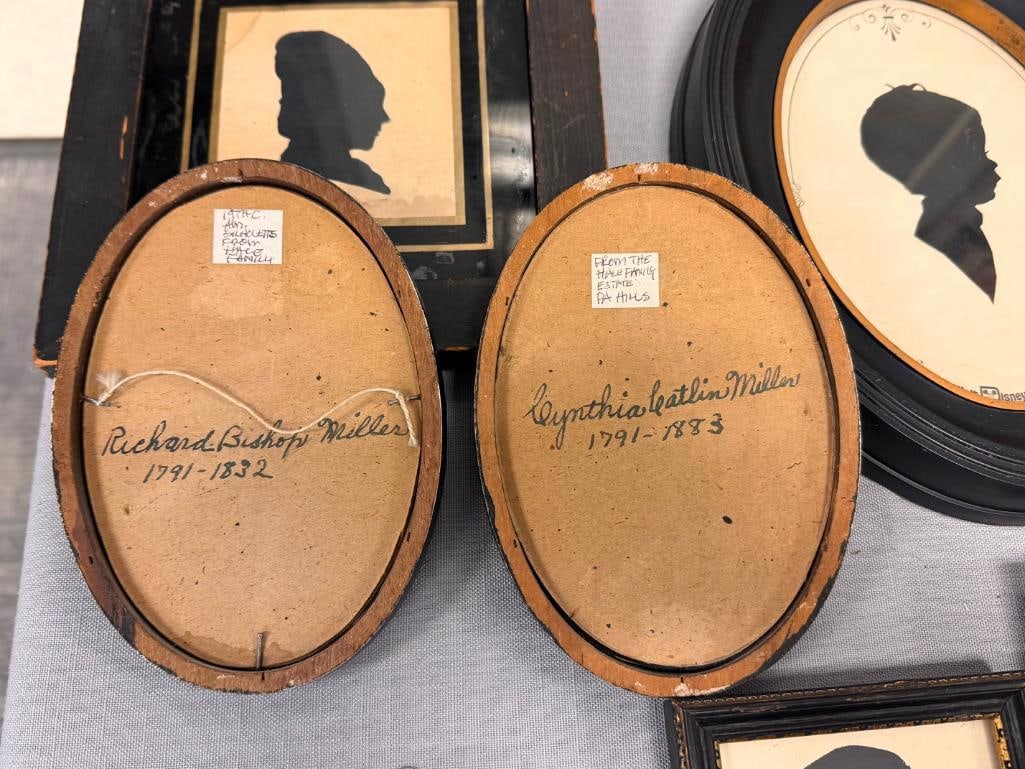 19TH C.
AM.
SILHOUETTES
FROM
HALE
FAMILY
Richard Bishop Miller
1791-1832
FROM THE
HALE FAMILY
ESTATE
PA HILLS
Cynthia Catlin Miller
1791-1883
Disney